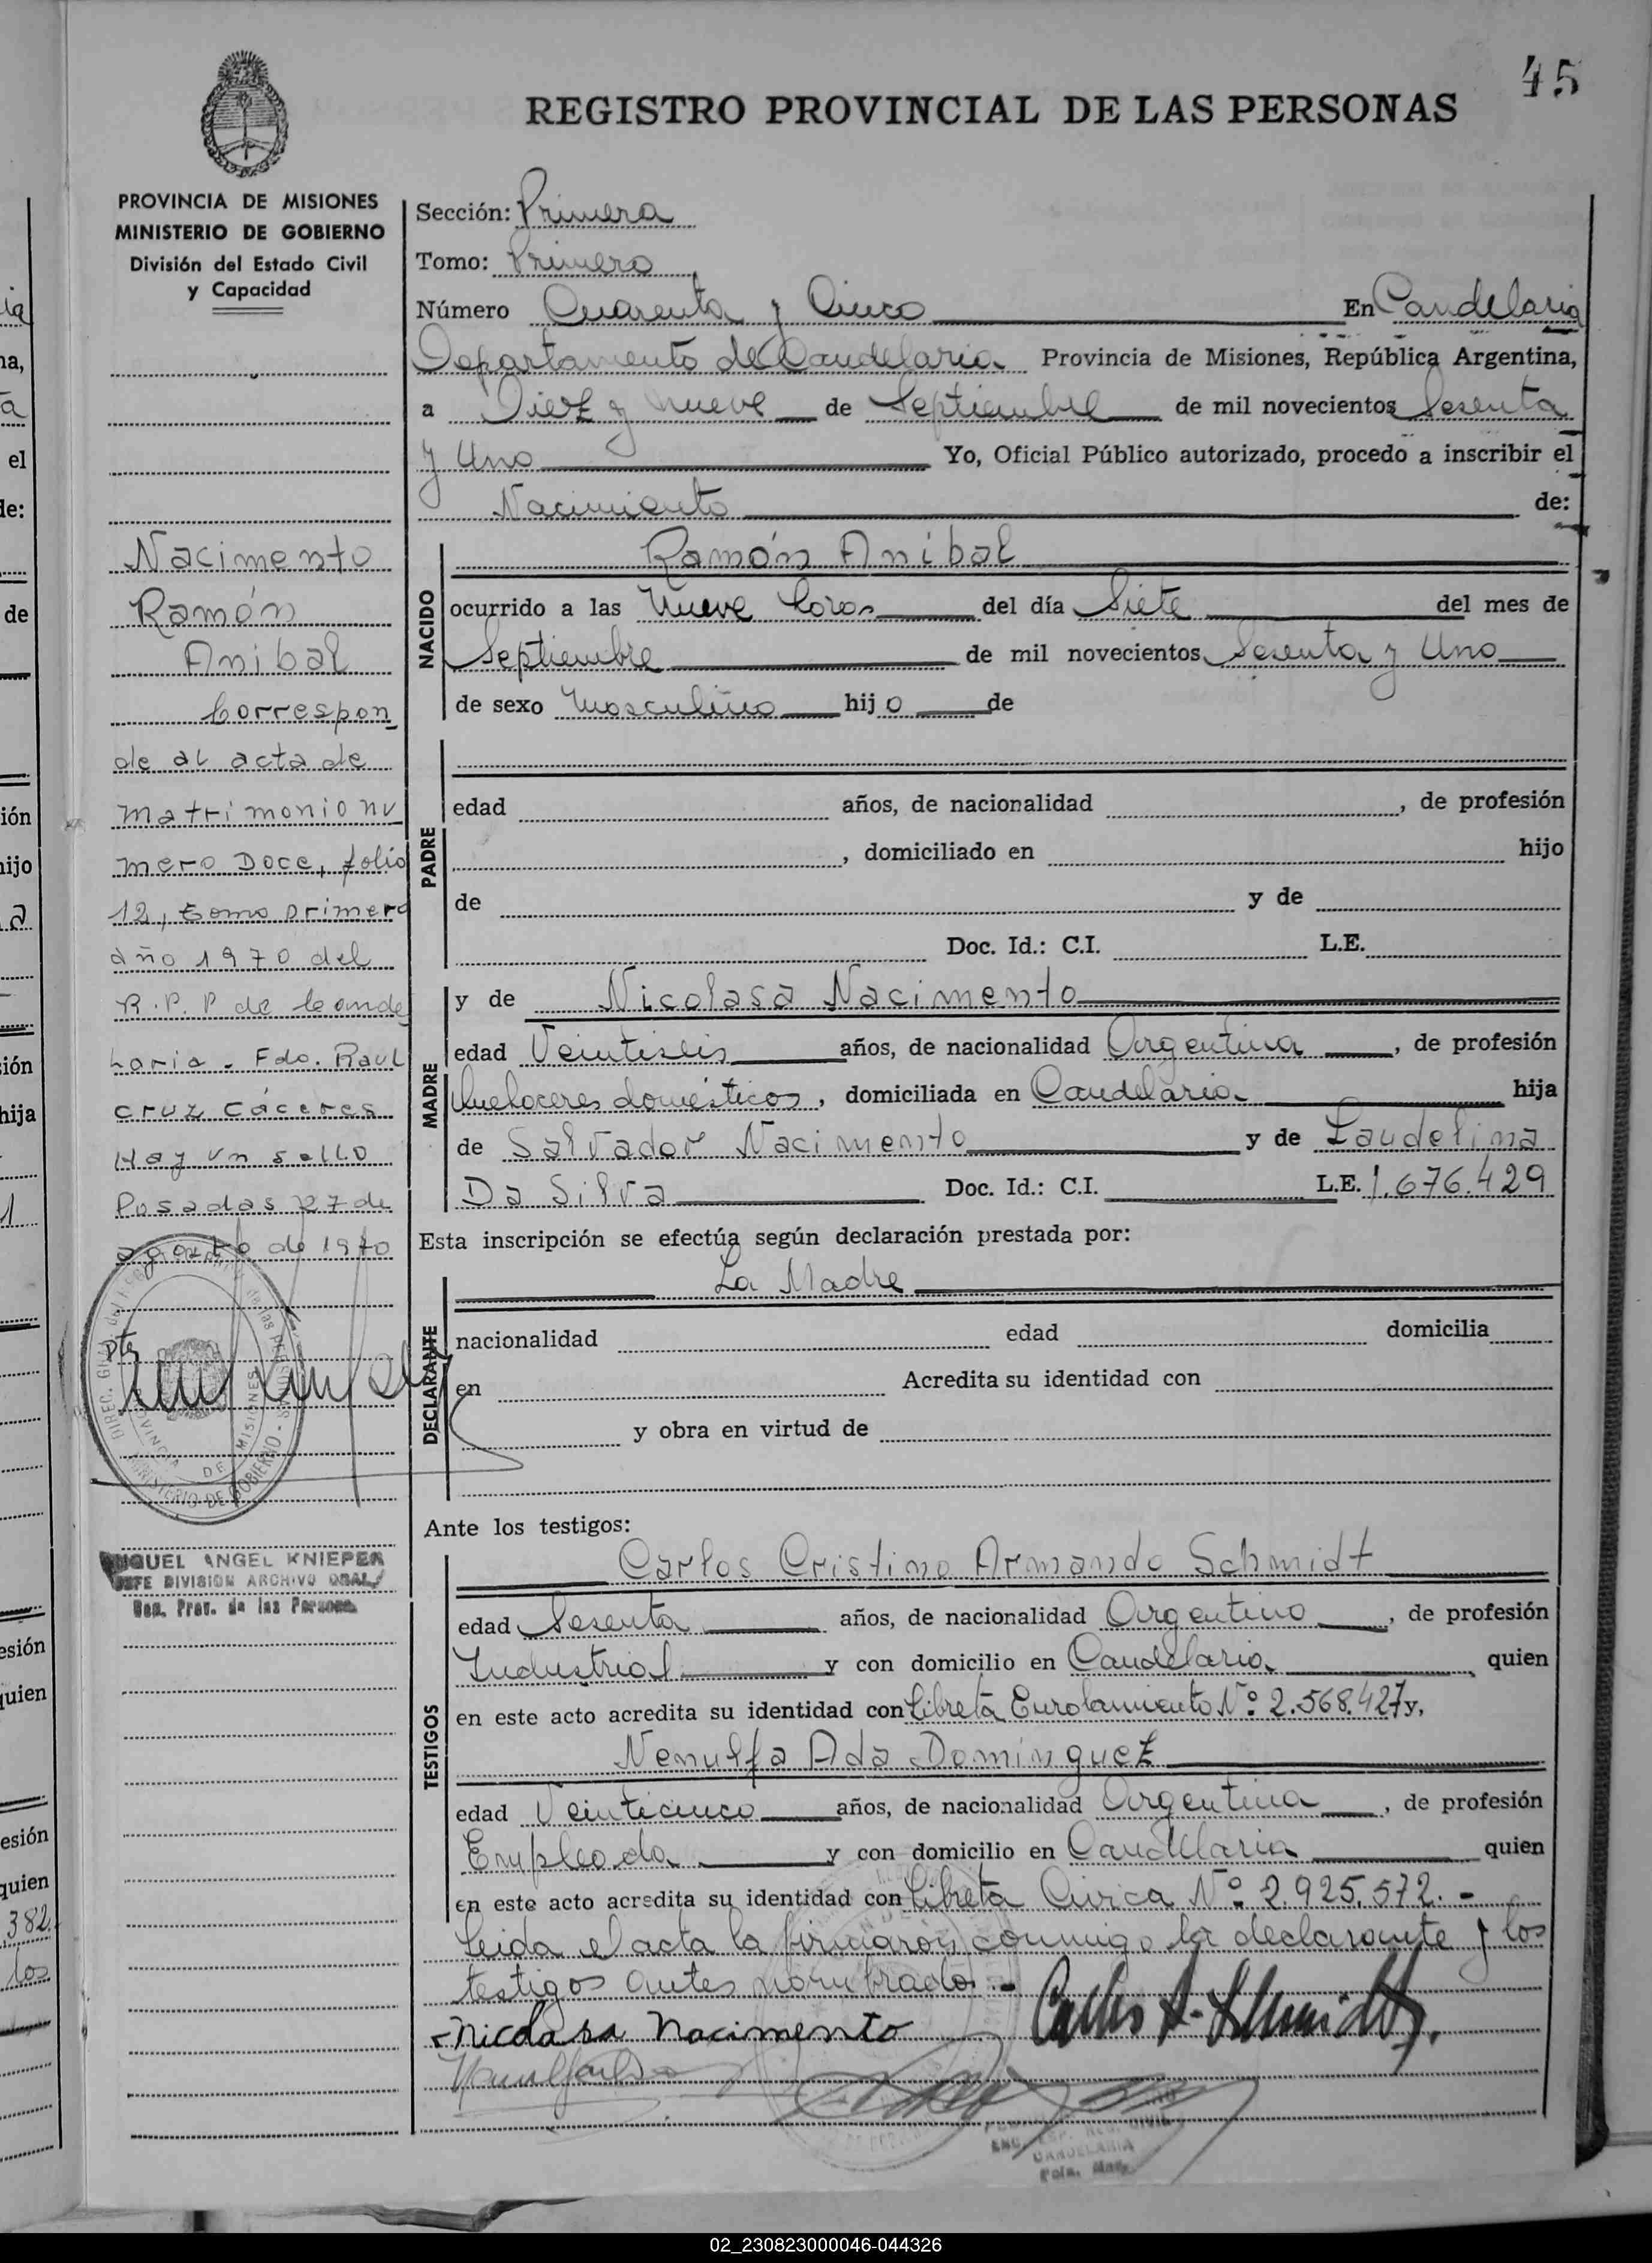 45
REGISTRO PROVINCIAL DE LAS PERSONAS
PROVINCIA DE MISIONES
MINISTERIO DE GOBIERNO
División del Estado Civil
y Capacidad
Nacimento
Ramón
Anibal
Correspon
de al acta de
matrimonio nu
mero Doce, folio
12, tomo primero
año 1970 del
R.P.P de Cande
laria - Fdo. Raul
cruz Cáceres
Hay un sello
Posadas 27 de
agosto de 1970
MIGUEL ANGEL KNIEPER
JEFE DIVISION ARCHIVO GRAL.
Reg. Prov. de las Personas
Sección: Primera
Tomo: Primero
Número Cuarenta y Cinco En Candelaria
Departamento de Candelaria Provincia de Misiones, República Argentina,
a Diez y nueve de Septiembre de mil novecientos Sesenta
y Uno Yo, Oficial Público autorizado, procedo a inscribir el
Nacimiento de:
NACIDO
Ramón Anibal
ocurrido a las Nueve horas del día Siete del mes de
Septiembre de mil novecientos Sesenta y Uno
de sexo Masculino hijo de
PADRE
edad años, de nacionalidad , de profesión
, domiciliado en hijo
de y de
Doc. Id.: C.I. L.E.
MADRE
y de Nicolasa Nacimento
edad Veintiseis años, de nacionalidad Argentina , de profesión
Quehaceres domésticos, domiciliada en Candelaria hija
de Salvador Nacimento y de Laudelina
Da Silva Doc. Id.: C.I. L.E. 1.676.429
Esta inscripción se efectúa según declaración prestada por:
La Madre
DECLARANTE
nacionalidad edad domicilia
en Acredita su identidad con
y obra en virtud de
Ante los testigos:
TESTIGOS
Carlos Cristino Armando Schmidt
edad Sesenta años, de nacionalidad Argentino , de profesión
Industrial y con domicilio en Candelaria quien
en este acto acredita su identidad con Libreta Enrolamiento Nº 2.568.427 y,
Nenufa Ada Dominguez
edad Veinticinco años, de nacionalidad Argentina , de profesión
Empleada y con domicilio en Candelaria quien
en este acto acredita su identidad con Libreta Civica Nº 2.925.572. -
Leida el acta la firmaron conmigo la declarante y los
testigos antes nombrados. -
Nicolasa Nacimento Carlos A. Schmidt
CANDELARIA
02_230823000046-044326